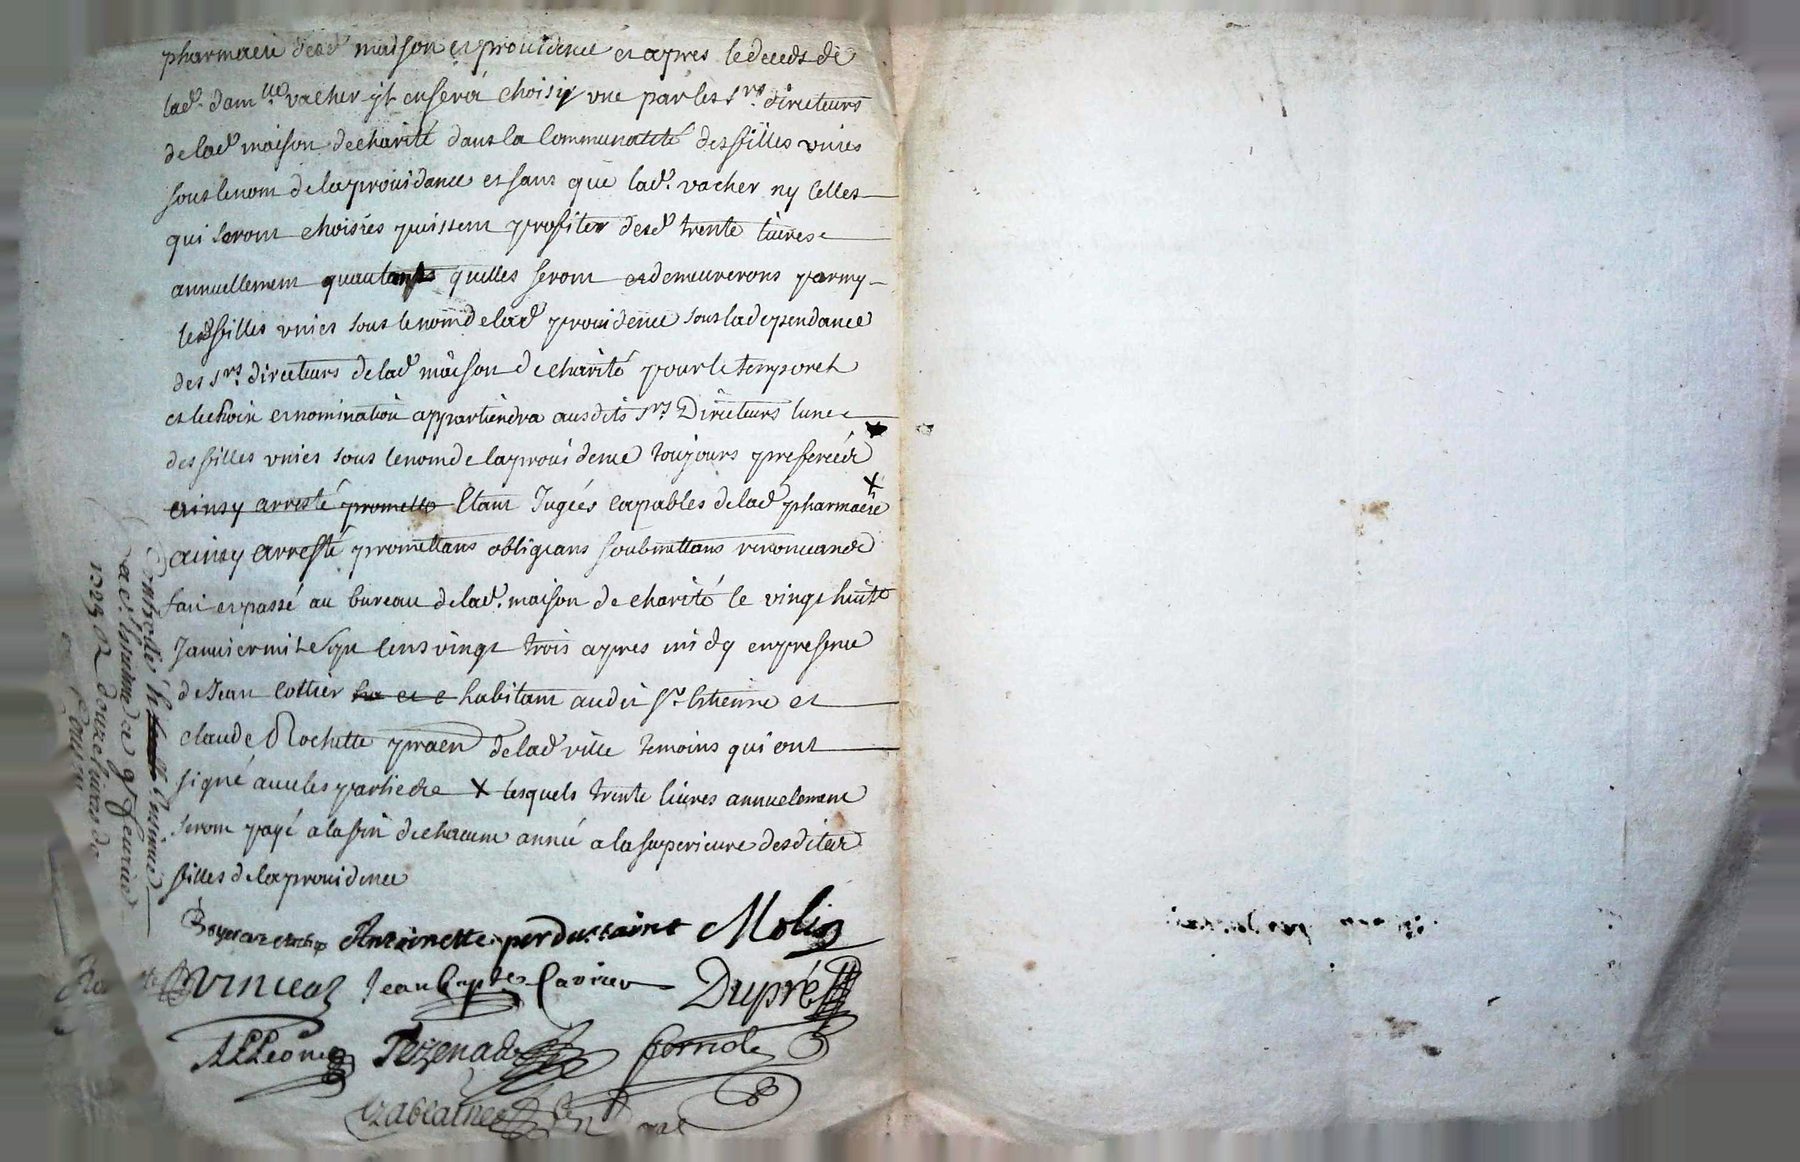 pharmacie de lad. maison et providence et apres le deceds de
lad. damlle vacher yl en sera choisy vne par les srs. directeurs
de lad. maison de charité dans la Communauté des filles vnies
sous le nom de la providance et sans que lad. vacher ny celles
qui seront choisies puissent profiter desd. trente livres
annuellement quautants quelles seront et demeureront parmy
lesd filles vnies sous le nom de lad providence sous la dependance
des srs. directeurs de lad maison de charité pour le temporel
et le choix et nomination appartiendra ausdits srs Directeurs lune
des filles vnies sous le nom de la providence toujours preferée
ainsy arresté promett Etant Jugées capables de lad pharmacie X
ainsy arresté promettans obligeans soubmettans renonceans
fait et passé au bureau de lad. maison de charité le vingt huit
Janvier mil sept cens vingt trois apres midy en presence
de Jean cottier habitant audit St. Estienne et
claude Rochette praen de lad ville temoins qui ont
signé avec les parties X lesquels trente livres annuelement
seront payé a la fin de chacune année a la superieure desdites
filles de la providence
Antoinette perdussaint Molin
vincent Jean bapte Dupré
ALLeon Tezenas
Controllé a St. Estienne
ce 9 fevrier
1723 R douze livres